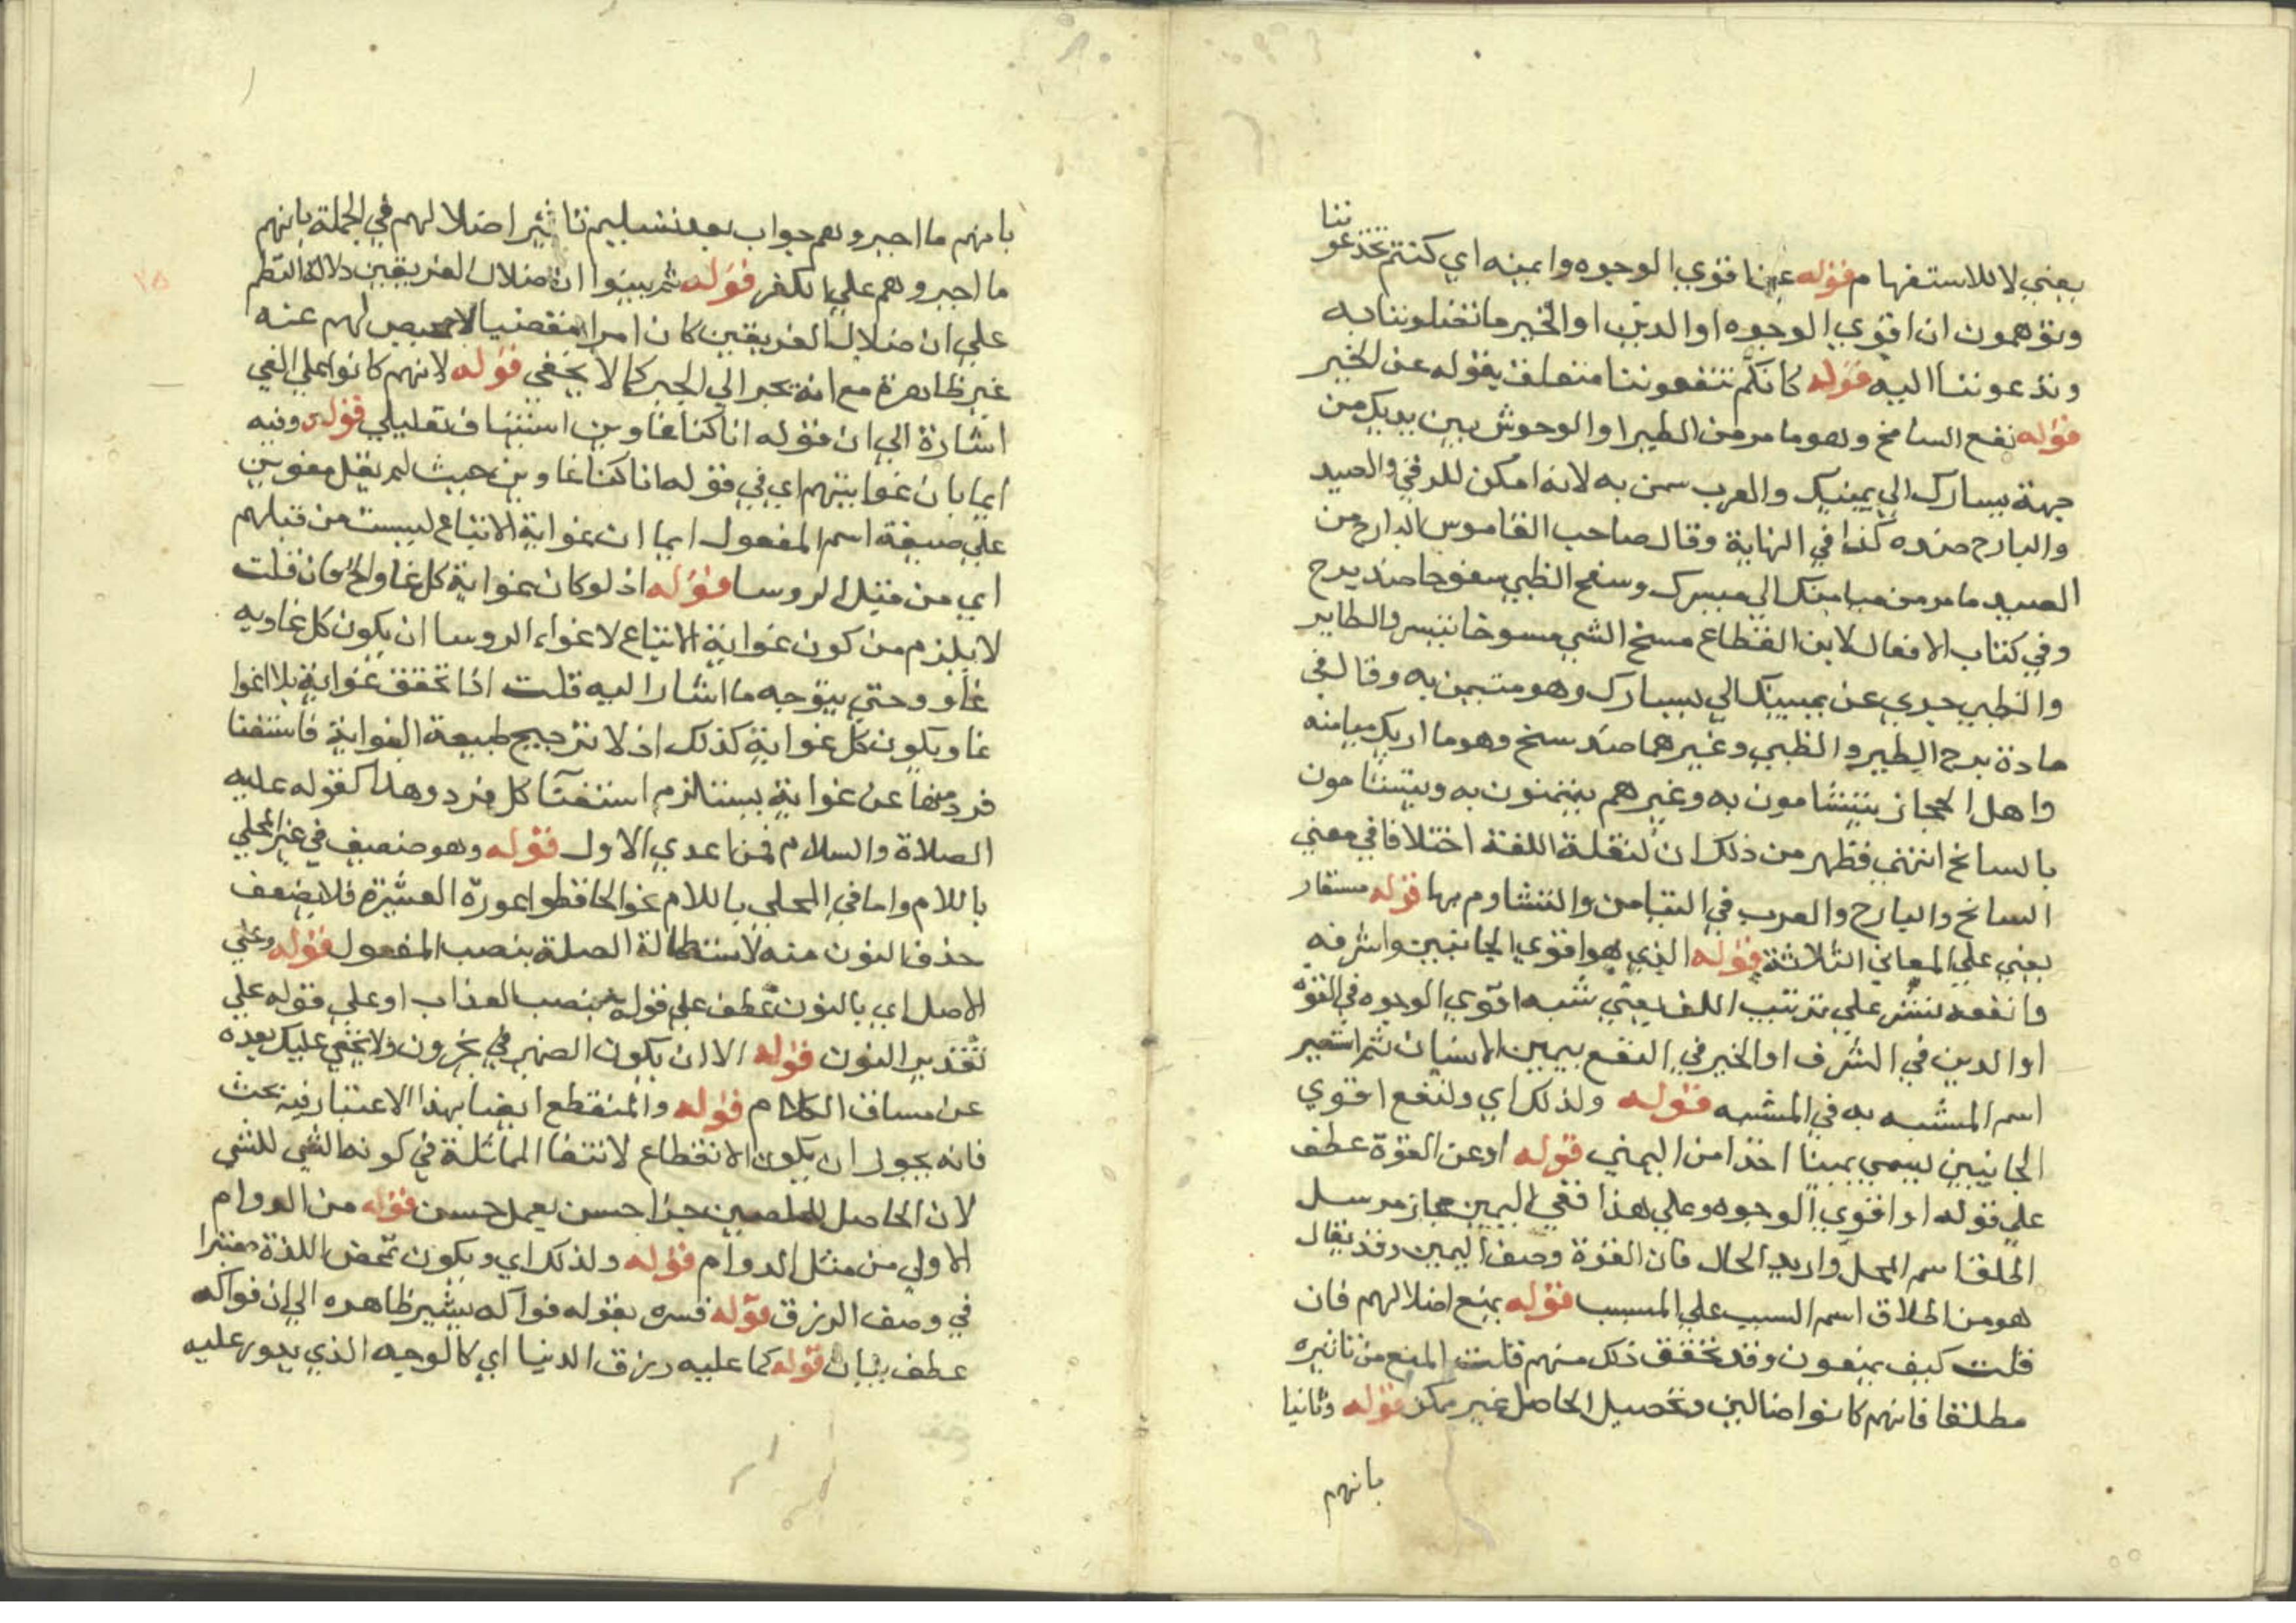 ننا
يعني لا للاستفهام قوله عن اقوي الوجوه وايمنه اي كنتم تخدعو
وتوهمون ان اقوي الوجوه او الدين او الخير ما تضلوننا به
وتدعوننا اليه قوله كانكم تنفعوننا متعلق بقوله عن الخير
قوله نفع السانح وهو ما مر من الطير او الوحوش بين يديك من
جهة يسارك الي يمينك والعرب تيمن به لانه امكن للرمي والصيد
والبارح ضده كذا في النهاية وقال صاحب القاموس البارح من
الصيد ما مر من ميامنك الي مياسرك وسنح الظبي سنوحا ضد برح
وفي كتاب الافعال لابن القطاع سنح الشي سنوحا تيسر والطاير
والظبي جري عن يمينك الي يسارك وهو متيمن به وقال في
مادة برح الطير والظبي وغيرهما ضد سنح وهو ما اريك ميامنه
واهل الحجاز يتشامون به وغيرهم يتيمنون به ويتشامون
بالسانح انتهي فظهر من ذلك ان لنقلة اللغة اختلافا في معني
السانح والبارح والعرب في التيامن والتشاوم بها قوله مستعار
يعني علي المعاني الثلاثة قوله الذي هو اقوي الجانبين واشرفه
وانفعه نشر علي ترتيب اللف يعني شبه اقوي الوجوه في القوة
او الدين في الشرف او الخير في النفع بيمين الانسان ثم استعير
اسم المشبه به في المشبه قوله ولذلك اي ولنفع اقوي
الجانبين يسمي يمينا اخذا من اليمني قوله او عن القوة عطف
علي قوله او اقوي الوجوه وعلي هذا ففي اليمين مجاز مرسل
اطلق اسم المحل واريد الحال فان القوة وصف اليمين وقد يقال
هو من اطلاق اسم السبب علي المسبب قوله بمنع اضلالهم فان
قلت كيف يمنعون وقد تحقق ذلك منهم قلت المنع من تاثيره
مطلقا فانهم كانوا ضالين وتحصيل الحاصل غير ممكن قوله وثانيا
بانهم
بانهم ما اجبروهم جواب بعد تسليم تاثير اضلالهم في الجملة بانهم
ما اجبروهم علي الكفر قوله ثم بينوا ان ضلال الفريقين دلالة النظم
علي ان ضلال الفريقين كان امرا مقضيا لا محيص لهم عنه
غير ظاهرة مع انه يجر الي الجبر كما لا يخفي قوله لانهم كانوا علي الغي
اشارة الي ان قوله انا كنا غاوين استيناف تعليلي قوله وفيه
ايما بان غوايتهم اي في قوله انا كنا غاوين حيث لم يقل مغوين
علي صيغة اسم المفعول ايما ان غواية الاتباع ليست من قبلهم
اي من قبل الروسا قوله اذ لو كان غواية كل غاو الخ فان قلت
لا يلزم من كون غواية الاتباع لاغواء الروسا ان يكون كل غاويه
غاو وحتي يتوجه ما اشار اليه قلت اذا تحقق غواية بلا اغوا
غاو يكون كل غواية كذلك اذ لا ترجيح طبيعة الغواية فاستغنا
فرد منها عن غواية يستلزم استغنا كل فرد وهذا كقوله عليه
الصلاة والسلام فمن اعدي الاول قوله وهو ضعيف في غير المحلي
باللام واما في المحلي باللام نحو الحافظوا عورة العشيرة فلا يضعف
حذف النون منه لاستطالة الصلة بنصب المفعول قوله وعلي
الاصل اي بالنون عطف علي قوله بنصب العذاب او علي قوله علي
تقدير النون قوله الا ان يكون الضمير في تجزون ولا يخفي عليك بعده
عن مساق الكلام قوله والمنقطع ايضا بهذا الاعتبار فيه بحث
فانه يجوز ان يكون الانقطاع لانتفا المماثلة في كونه الشي للشي
لان الحاصل للمخلصين جزا حسن بعمل حسن قوله من الدوام
الاولي من مثل الدوام قوله ولذلك اي ويكون تمحض اللذة معتبرا
في وصف الرزق قوله فسره بقوله فواكه يشير ظاهره الي ان فواكه
عطف بيان قوله كما عليه رزق الدنيا اي كالوجه الذي يدور عليه